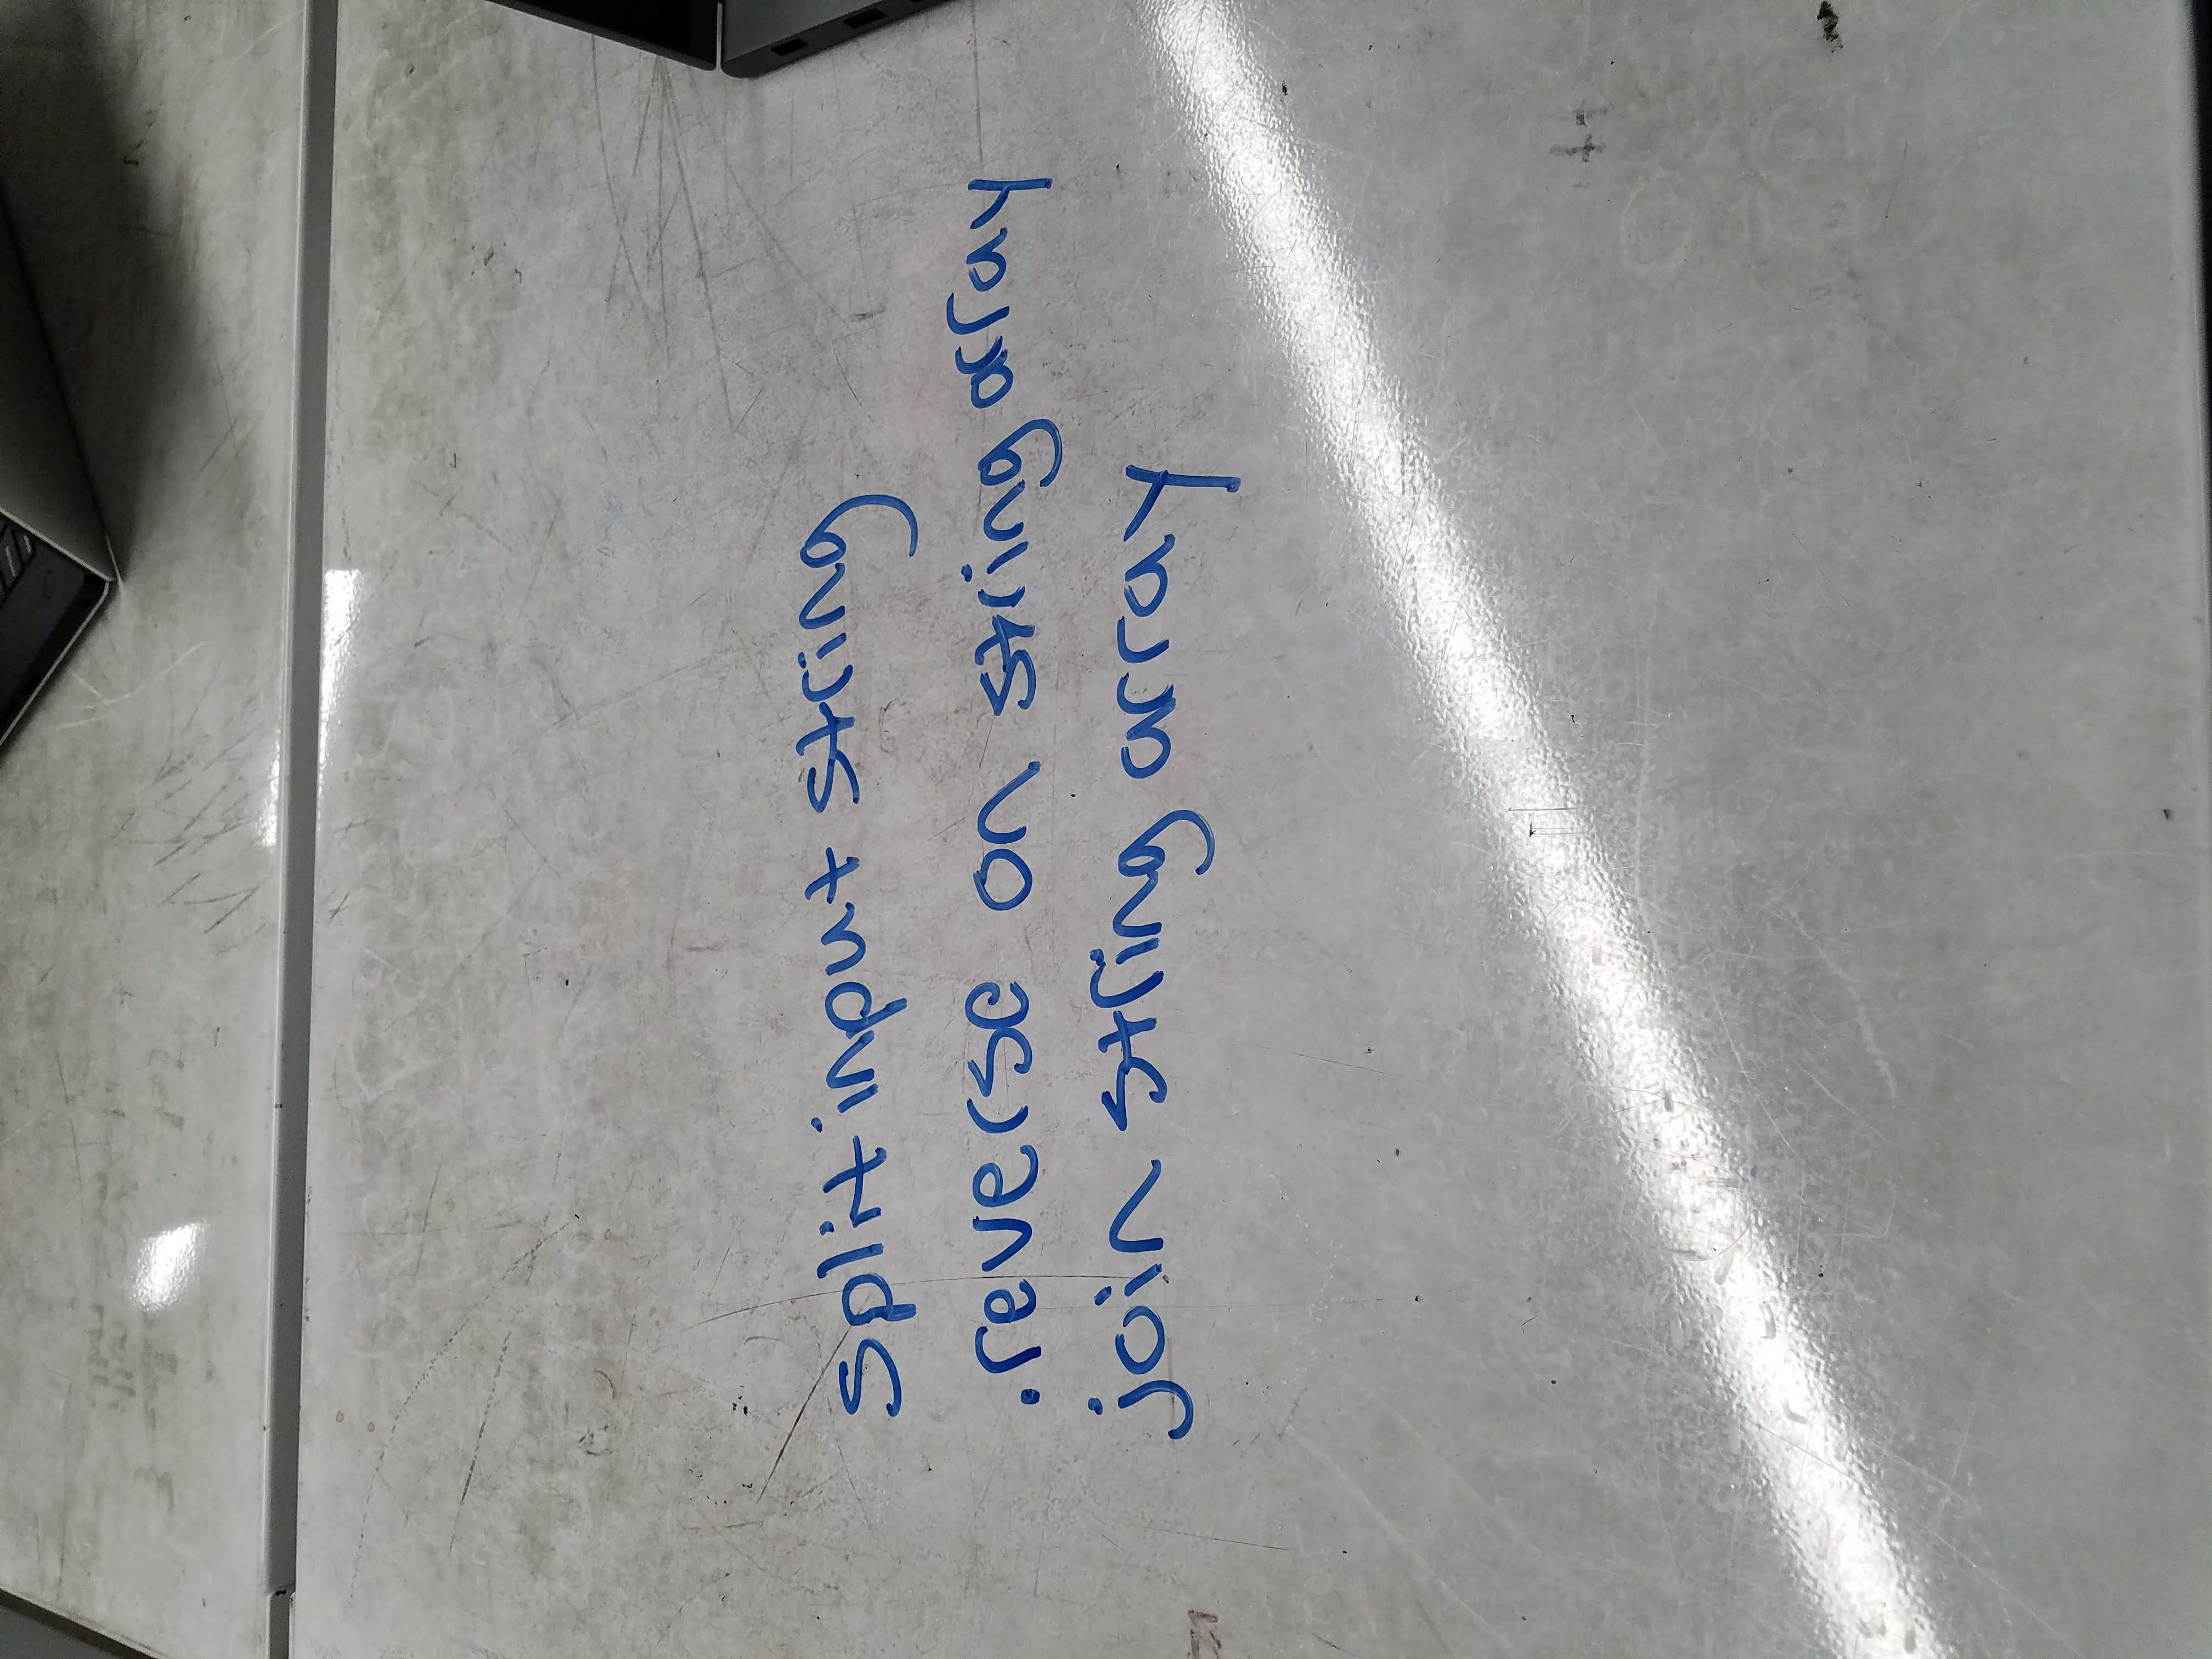 split input string
.reverse on string array
join string array